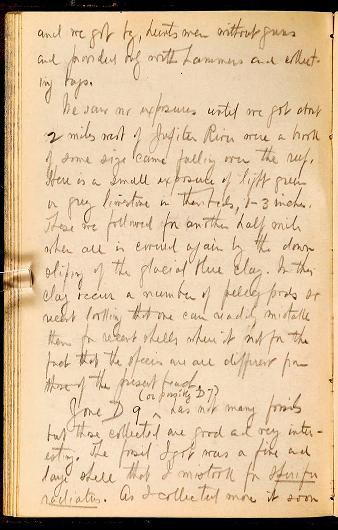 and we got by, hunts men without guns
and provided only with hammers and collect-
ing bags.
We saw no exposures until we got about
2 miles west of Jupiter River were a brook
of some size came falling over the reef.
Here is a small exposure of light green
or grey limestone in thin beds, 1-3 inches.
These we followed for another half mile
when all is covered again by the down
slipping of the glacial blue clay. In this
clay occur a number of pelecypods so
recent looking that one can readily mistake
them for recent shells where it not for the
fact that the species are all different from
those of the present
Zone D 9 (or possibly D 7) has not many fossils
but those collected are good and very inter-
esting. The first I got was a fine and
large shell that I mistook for Spirifer
radiatus. As I collected more it soon